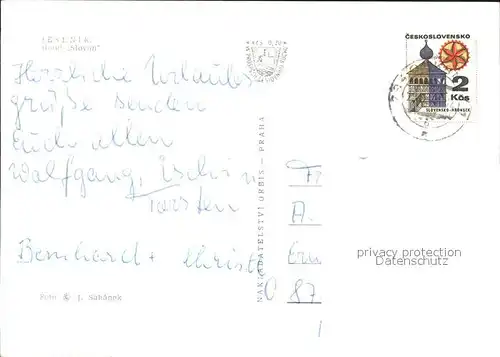 JESENÍK
Hotel „Slovan“
Herzliche Urlaubs
grüße senden
Euch allen
Wolfgang, Uschi u
Torsten
Bernhard + Christ
Foto J. Sakánek
NAKLADATELSTVÍ ORBIS – PRAHA
ČESKOSLOVENSKO
2
Kčs
SLOVENSKO-HRONSEK
A.
87
privacy protection
Datenschutz